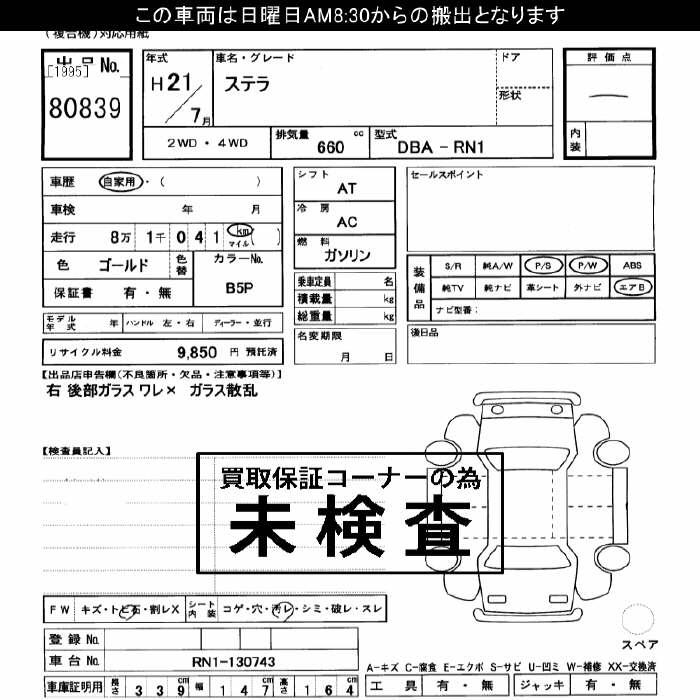 この車両は日曜日AM8:30からの搬出となります
(複合機)対応用紙
出品No. [1995] 80839
年式 H21/7月
車名・グレード ステラ
ドア
形状
評価点 ―
内装
2WD・4WD 排気量 660 cc 型式 DBA-RN1
車歴 自家用・( )
車検 年 月
走行 8万 1千 0 4 1 km マイル ( )
色 ゴールド 色替 カラーNo. B5P
保証書 有・無
モデル年式 年 ハンドル 左・右 ディーラー・並行
リサイクル料金 9,850 円 預託済
シフト AT
冷房 AC
燃料 ガソリン
乗車定員 名
積載量 kg
総重量 kg
名変期限 月 日
セールスポイント
装備品 S/R 純A/W P/S P/W ABS
純TV 純ナビ 革シート 外ナビ エアB
ナビ型番:
後日品
【出品店申告欄(不良箇所・欠品・注意事項等)】
右 後部ガラス ワレ× ガラス散乱
【検査員記入】
買取保証コーナーの為
未検査
FW キズ・トビ石・割レX シート内装 コゲ・穴・汚レ・シミ・破レ・スレ
登録No.
車台No. RN1-130743
車庫証明用 長さ 3 3 9 cm 幅 1 4 7 cm 高さ 1 6 4 cm
スペア
A-キズ C-腐食 E-エクボ S-サビ U-凹ミ W-補修 XX-交換済
工具 有・無 ジャッキ 有・無